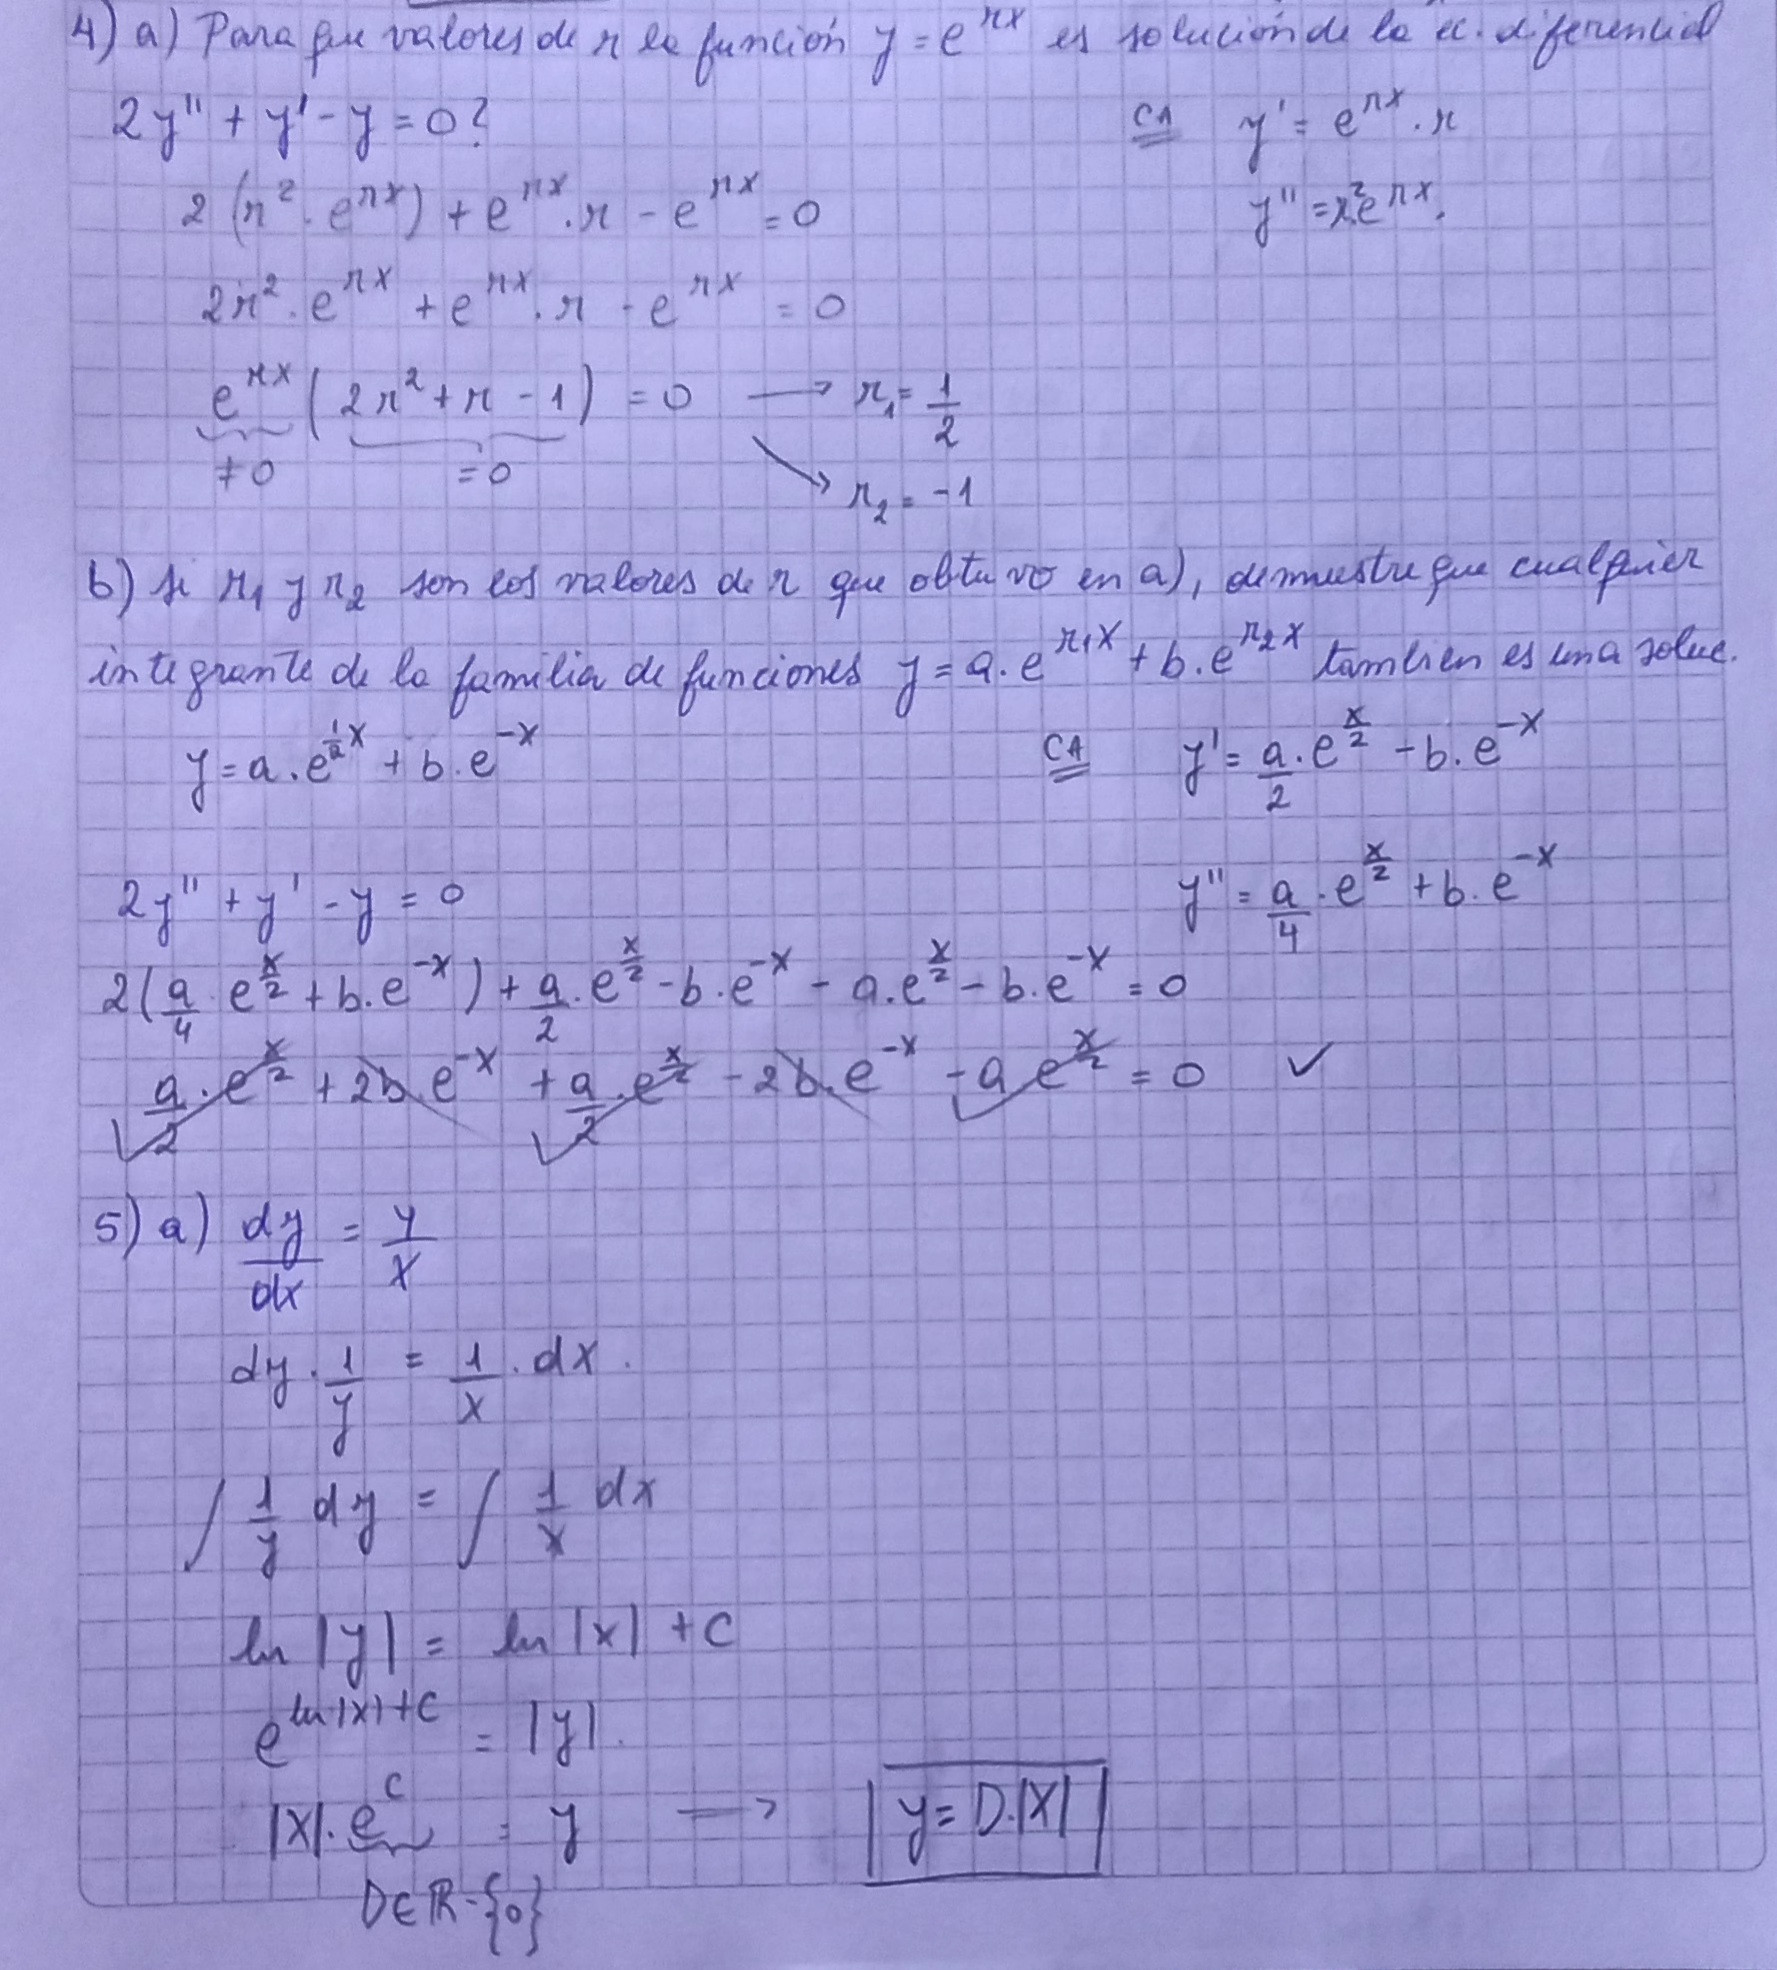 4) a) Para que valores de r la función y = e^{rx} es solución de la ec. diferencial
2y'' + y' - y = 0?
CA y' = e^{rx} . r
2 (r² . e^{rx}) + e^{rx} . r - e^{rx} = 0
y'' = r² e^{rx}.
2r² . e^{rx} + e^{rx} . r - e^{rx} = 0
e^{rx} ( 2r² + r - 1 ) = 0 → r₁ = 1/2
≠ 0 = 0
↘ r₂ = -1
b) si r₁ y r₂ son los valores de r que obtuvo en a), demuestre que cualquier
integrante de la familia de funciones y = a . e^{r₁x} + b . e^{r₂x} tambien es una soluc.
y = a . e^{1/2 x} + b . e^{-x}
CA y' = a/2 . e^{x/2} - b . e^{-x}
2y'' + y' - y = 0
y'' = a/4 . e^{x/2} + b . e^{-x}
2 ( a/4 . e^{x/2} + b . e^{-x} ) + a/2 . e^{x/2} - b . e^{-x} - a . e^{x/2} - b . e^{-x} = 0
a/2 . e^{x/2} + 2b . e^{-x} + a/2 . e^{x/2} - 2b . e^{-x} - a e^{x/2} = 0 ✓
5) a) dy/dx = y/x
dy . 1/y = 1/x . dx .
∫ 1/y dy = ∫ 1/x dx
ln |y| = ln |x| + C
e^{ln|x|+C} = |y| .
|X| . e^C = y → y = D.|X|
D ∈ ℝ - {0}